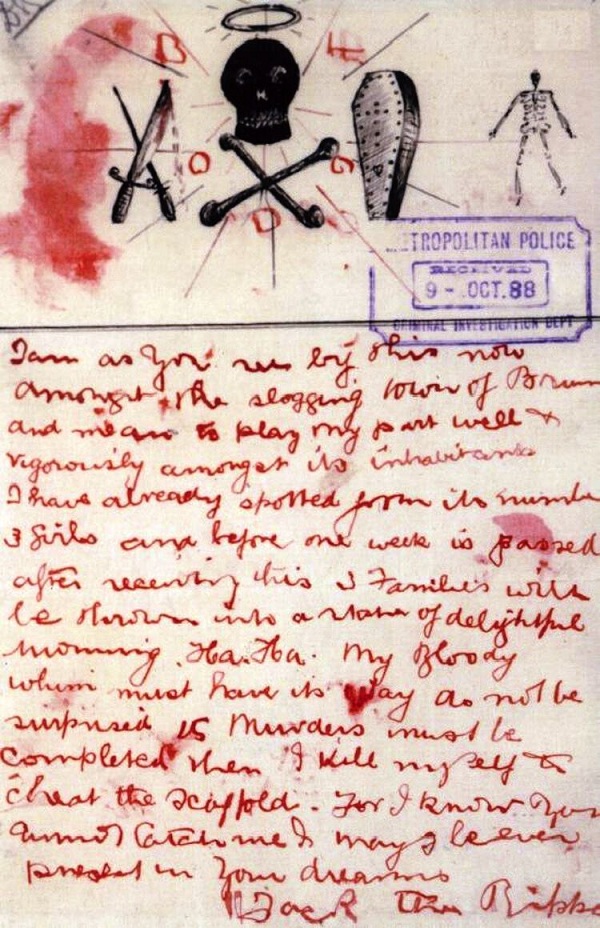 TROPOLITAN POLICE
RECEIVED
9 - .OCT.88
CRIMINAL INVESTIGATION DEPT
I am as you see by this now
amongst the slogging town of Brum
and mean to play my part well &
vigorously amongst its inhabitants
I have already spotted from its numbe
3 girls and before one week is passed
after receiving this 3 Families will
be thrown into a state of delightful
mourning. Ha. Ha. My Bloody
whim must have its way do not be
surprised 15 Murders must be
completed then I kill myself to
cheat the scaffold. For I know you
cannot catch me & may I be ever
present in your dreams
Jack the Rippe